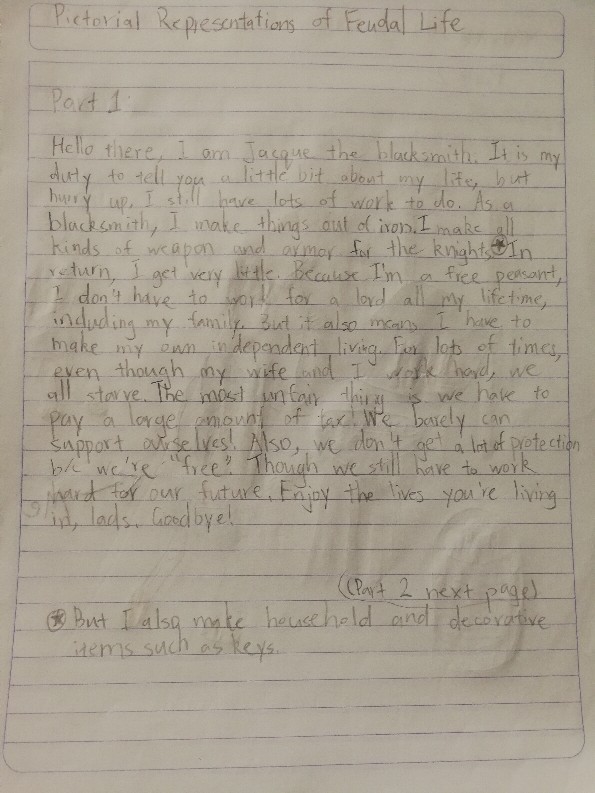 Pictorial Representations of Feudal Life
Part 1:
Hello there, I am Jacque the blacksmith. It is my
duty to tell you a little bit about my life, but
hurry up, I still have lots of work to do. As a
blacksmith, I make things out of iron. I make all
kinds of weapon and armor for the knights. In
return, I get very little. Because I'm a free peasant,
I don't have to work for a lord all my lifetime,
including my family. But it also means I have to
make my own independent living. For lots of times,
even though my wife and I work hard, we
all starve. The most unfair thing is we have to
pay a large amount of tax! We barely can
support ourselves! Also, we don't get a lot of protection
b/c we're "free". Though we still have to work
hard for our future. Enjoy the lives you're living
in, lads. Goodbye!
(Part 2 next page)
But I also make household and decorative
items such as keys.